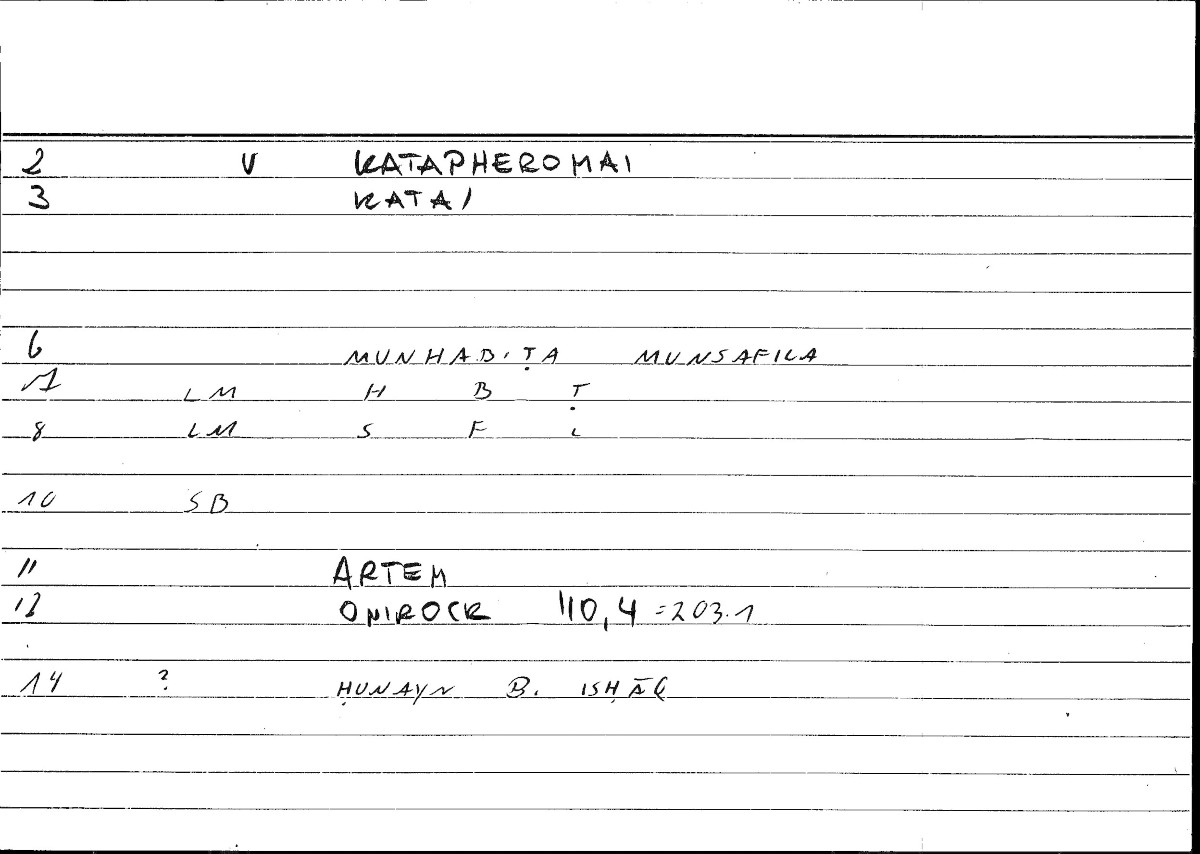 2 V KATAPHEROMAI
3 KATA/
6 MUNHABIṬA MUNSAFILA
7 LM H B Ṭ
8 LM S F L
10 SB
11 ARTEM
12 ONIROCR 110,4 =203.1
14 ? ḤUNAYN B. ISḤĀQ